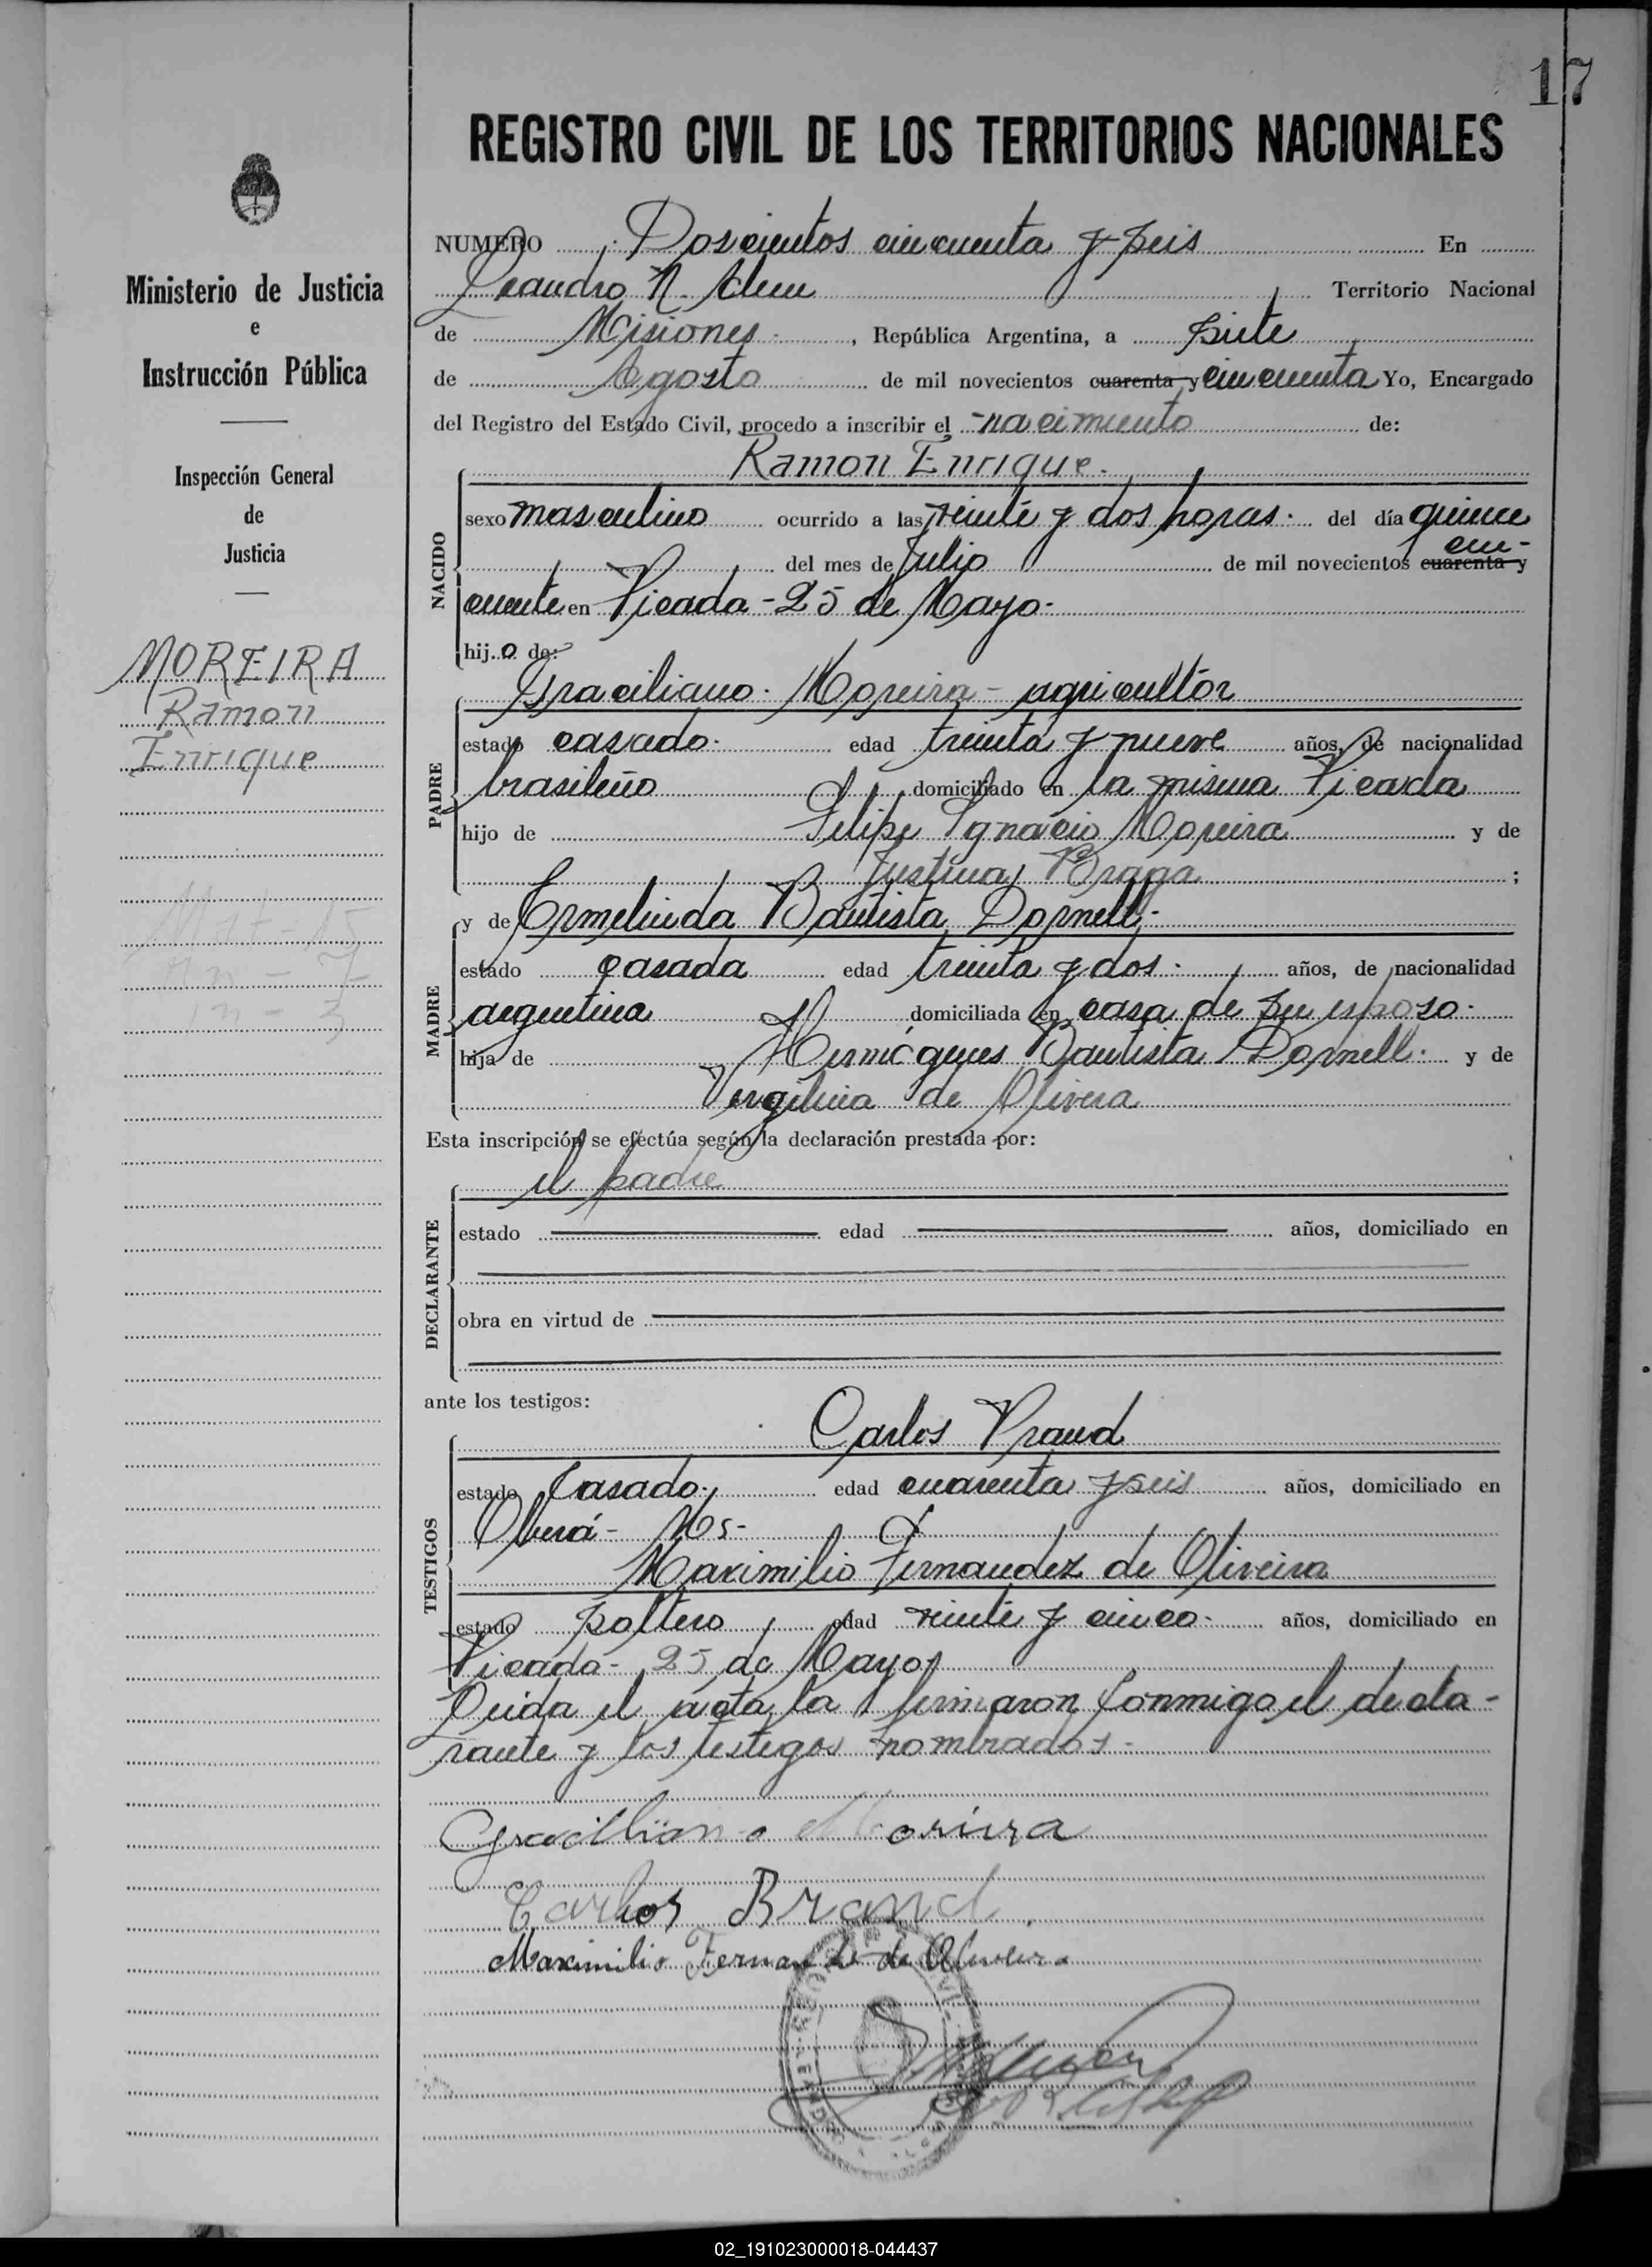 17
REGISTRO CIVIL DE LOS TERRITORIOS NACIONALES
Ministerio de Justicia
e
Instrucción Pública
Inspección General
de
Justicia
MOREIRA
Ramon
Enrique
Mat - 15
NUMERO Doscientos cincuenta y seis En
Leandro N. Alem Territorio Nacional
de Misiones , República Argentina, a siete
de Agosto de mil novecientos cuarenta y cincuenta Yo, Encargado
del Registro del Estado Civil, procedo a inscribir el nacimiento de:
NACIDO
Ramon Enrique.
sexo masculino ocurrido a las veinte y dos horas. del día quince
del mes de Julio de mil novecientos cuarenta y cin-
cuenta en Picada - 25 de Mayo.
hij o de:
PADRE
Graciliano Moreira - agricultor
estado casado. edad treinta y nueve años, de nacionalidad
brasileño domiciliado en la misma Picada
hijo de Felipe Ignacio Moreira y de
Justina Braga ;
MADRE
y de Ermelinda Bautista Dornell.
estado casada edad treinta y dos. años, de nacionalidad
argentina domiciliada en casa de su esposo.
hija de Hermógenes Bautista Dornell. y de
Virgilina de Olivera
Esta inscripción se efectúa según la declaración prestada por:
DECLARANTE
el padre
estado edad años, domiciliado en
obra en virtud de
ante los testigos:
TESTIGOS
Carlos Brand
estado Casado. edad cuarenta y seis años, domiciliado en
Oberá - Ms -
Maximilio Fernandez de Oliveira
estado soltero edad veinte y cinco. años, domiciliado en
Picada - 25 de Mayo
Leida el acta, la firmaron conmigo el decla-
rante y los testigos nombrados -
Gracilliano Moreira
Carlos Brand
Maximilio Fernandes de Oliveira
02_191023000018-044437